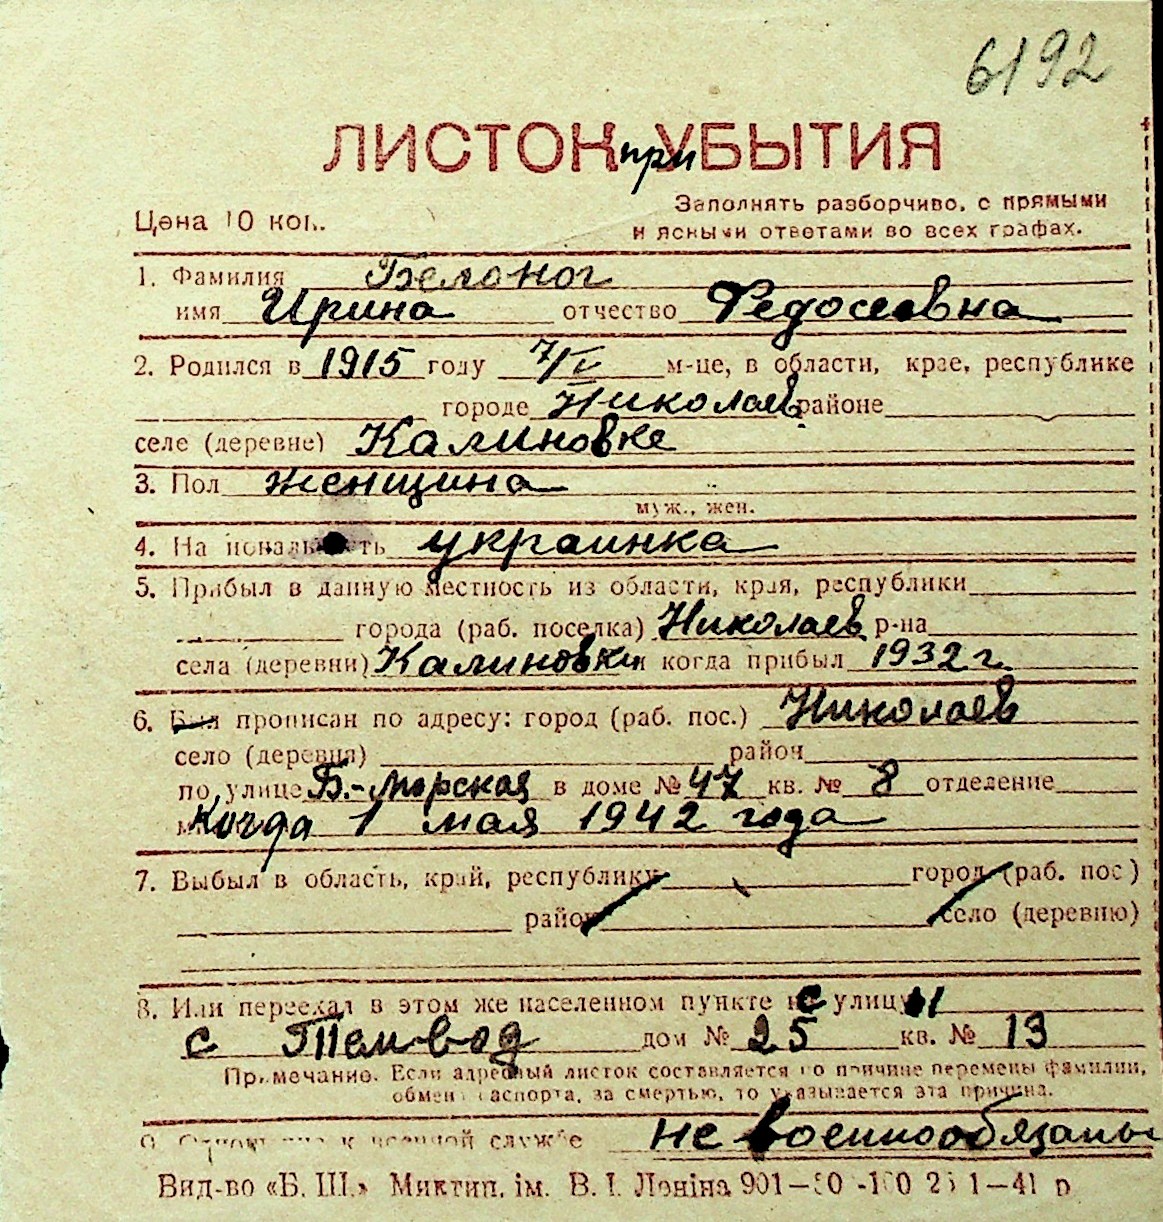 6192
ЛИСТОК при УБЫТИЯ
Цена 10 коп.
Заполнять разборчиво, с прямыми
и ясными ответами во всех графах.
1. Фамилия Белоног
имя Ирина отчество Федосеевна
2. Родился в 1915 году 7/V м-це, в области, крае, республике
городе Николаев районе
селе (деревне) Калиновке
3. Пол женщина
муж., жен.
4. Национальность украинка
5. Прибыл в данную местность из области, края, республики
города (раб. поселка) Николаев р-на
села (деревни) Калиновки и когда прибыл 1932 г.
6. Был прописан по адресу: город (раб. пос.) Николаев
село (деревня) район
по улице Б.-Морская в доме № 47 кв. № 8 отделение
когда 1 мая 1942 года
7. Выбыл в область, край, республику город (раб. пос)
район село (деревню)
8. Или переехал в этом же населенном пункте с улицы
с Темвод дом № 25 кв. № 13
Примечание. Если адресный листок составляется по причине перемены фамилии,
обмена паспорта, за смертью, то указывается эта причина.
9. к военной службе не военнообязаны
Вид-во «Б. Ш.» Миктип. ім. В. І. Леніна 901—41 р